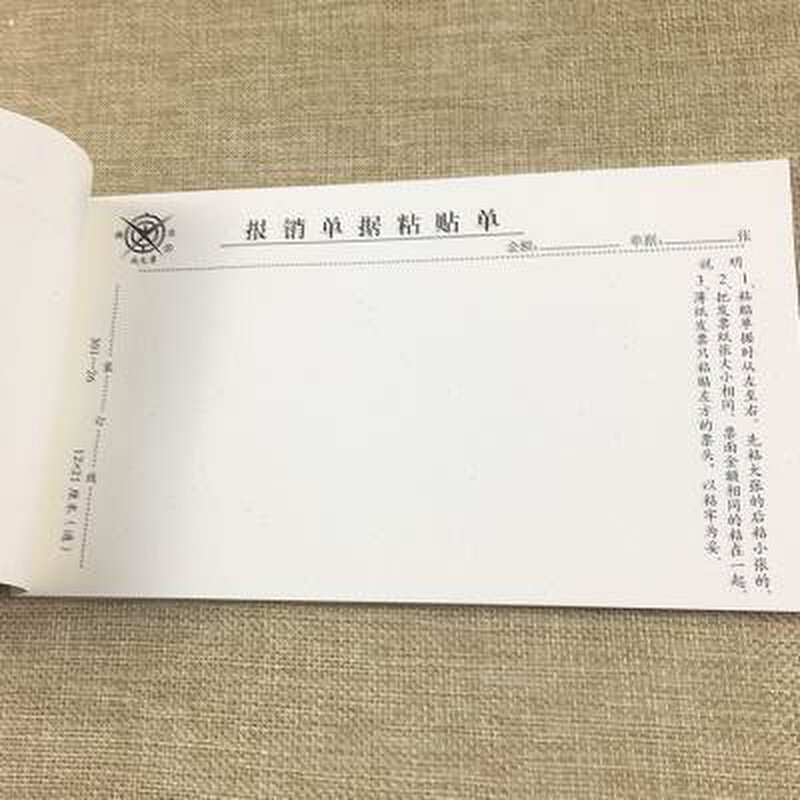 报销单据粘贴单
金额： 单据： 张
说明
1、粘贴单据时从左至右，先粘大张的后粘小张的，
2、把发票纸张大小相同、票面金额相同的粘在一起，
3、薄纸发票只粘贴左方的票头，以粘牢为妥，
装 订 线
301-26